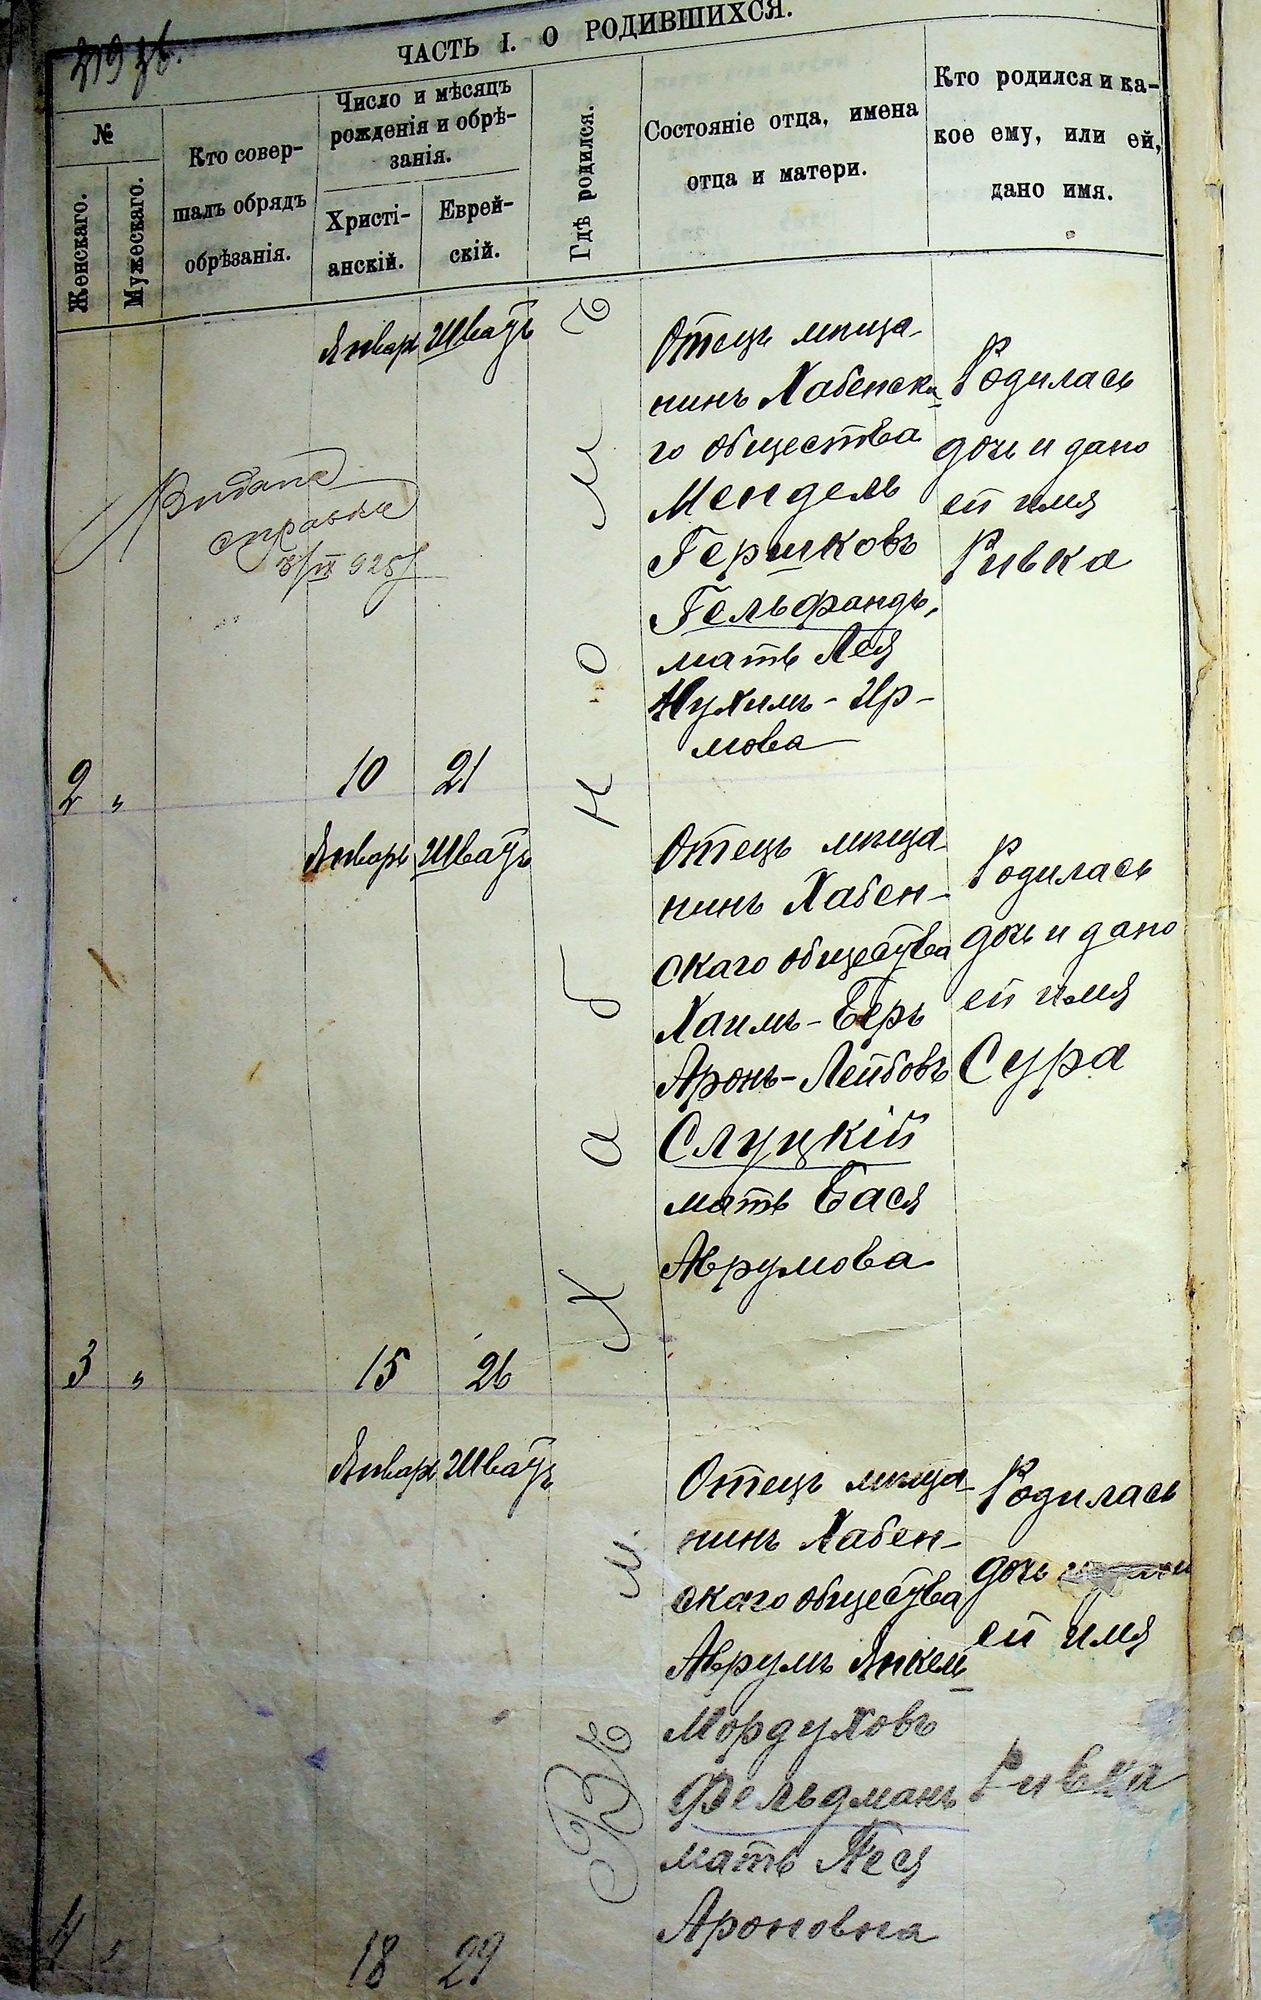 219 об.
ЧАСТЬ I. О РОДИВШИХСЯ.
№
Женскаго.
Мужескаго.
Кто совер-
шалъ обрядъ
обрѣзанія.
Число и мѣсяцъ
рожденія и обрѣ-
занія.
Христі-
анскій.
Еврей-
скій.
Гдѣ родился.
Состояніе отца, имена
отца и матери.
Кто родился и ка-
кое ему, или ей,
дано имя.
Январь Шватъ
Видана
справка
925
2 " 10 21
Въ м. Хабномъ
Отецъ мѣща-
нинъ Хабенска-
го общества
Мендель
Гершковъ
Гельфандъ,
мать Лея
Нухимъ-Ир-
мова
Родилась
дочь и дано
ей имя
Ривка
Январь Шватъ
3 " 15 26
Отецъ мѣща-
нинъ Хабен-
скаго общества
Хаимъ-Беръ
Аронъ-Лейбовъ
Слуцкій
мать Бася
Аврумова
Родилась
дочь и дано
ей имя
Сура
Январь Шватъ
4 " 18 29
Отецъ мѣща-
нинъ Хабен-
скаго общества
Аврумъ Янкель-
Мордуховъ
Фельдманъ
мать Песя
Ароновна
Родилась
дочь
ей имя
Ривка